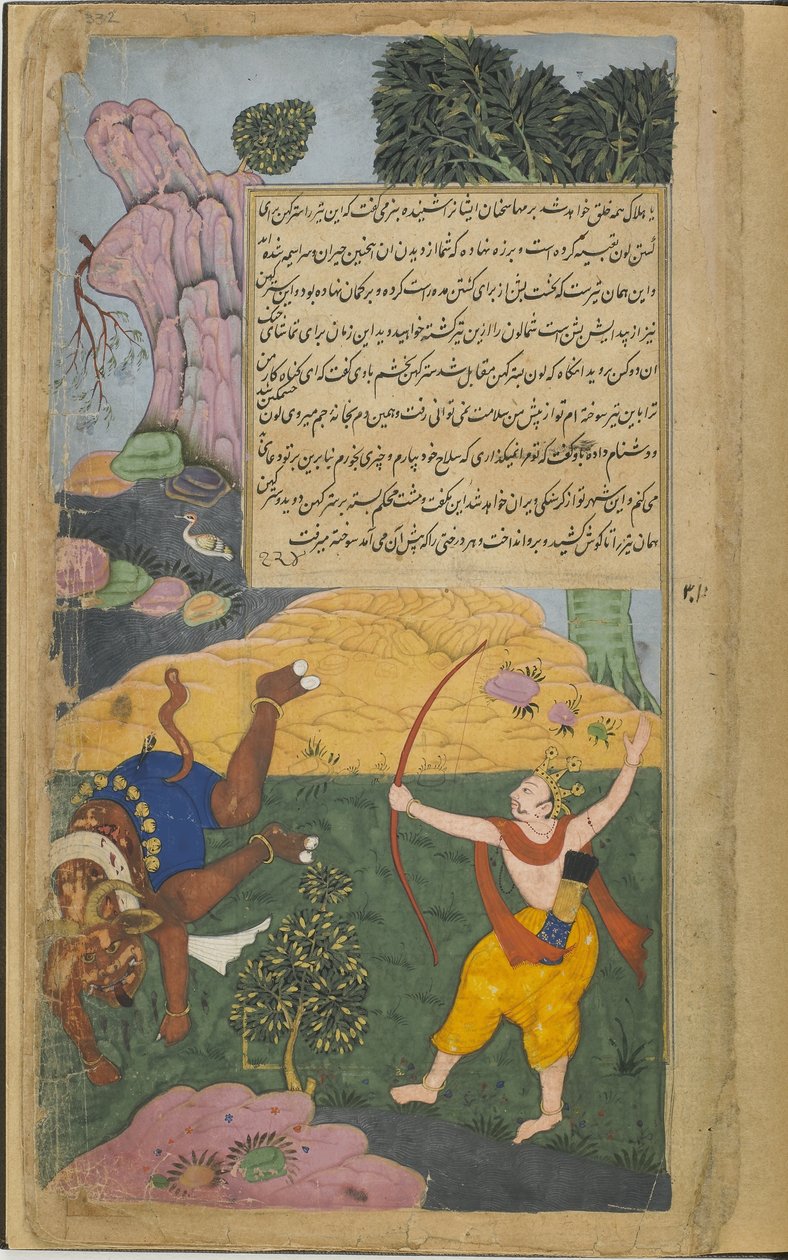 332
یا هلاک همه خلق خواهد شد برمها سخنان ایشانرا شنیده بتبسم می گفت که این تیر را سترکهن برای
کشتن لون تعبیه کرده است و بر زه نهاده که شما از دیدن آن اینچنین حیران و سراسیمه شده اید
و این همان تیرست که نخست بشن از برای کشتن مده راست کرده و بر کمان نهاده بود و این سترکهن
نیز از پیدایش بشن است شما لون را ازین تیر کشته خواهید دید این زمان برای تماشای جنگ
آن دو کس بروید آنگاه که لون بسترکهن مقابل شد سترکهن بخشم باوی گفت که ای گناه کار من
ترا باین تیر سوخته ام تو از پیش من سلامت نمی توانی رفت و همین دم بخانهٔ جم میروی لون خشمگین شد
و دشنام داده باو گفت که تو مرا نمیگذاری که سلاح خود بیارم و چیزی بخورم بنابرین بر تو دعای بد
می کنم و این شهر تو از گرسنگی ویران خواهد شد این بگفت و مشت محکم بسته بر سترکهن دوید و سترکهن
همان تیر را تا گوش کشید و برو انداخت و هر درختی را که پیش آن می آمد سوخته میرفت